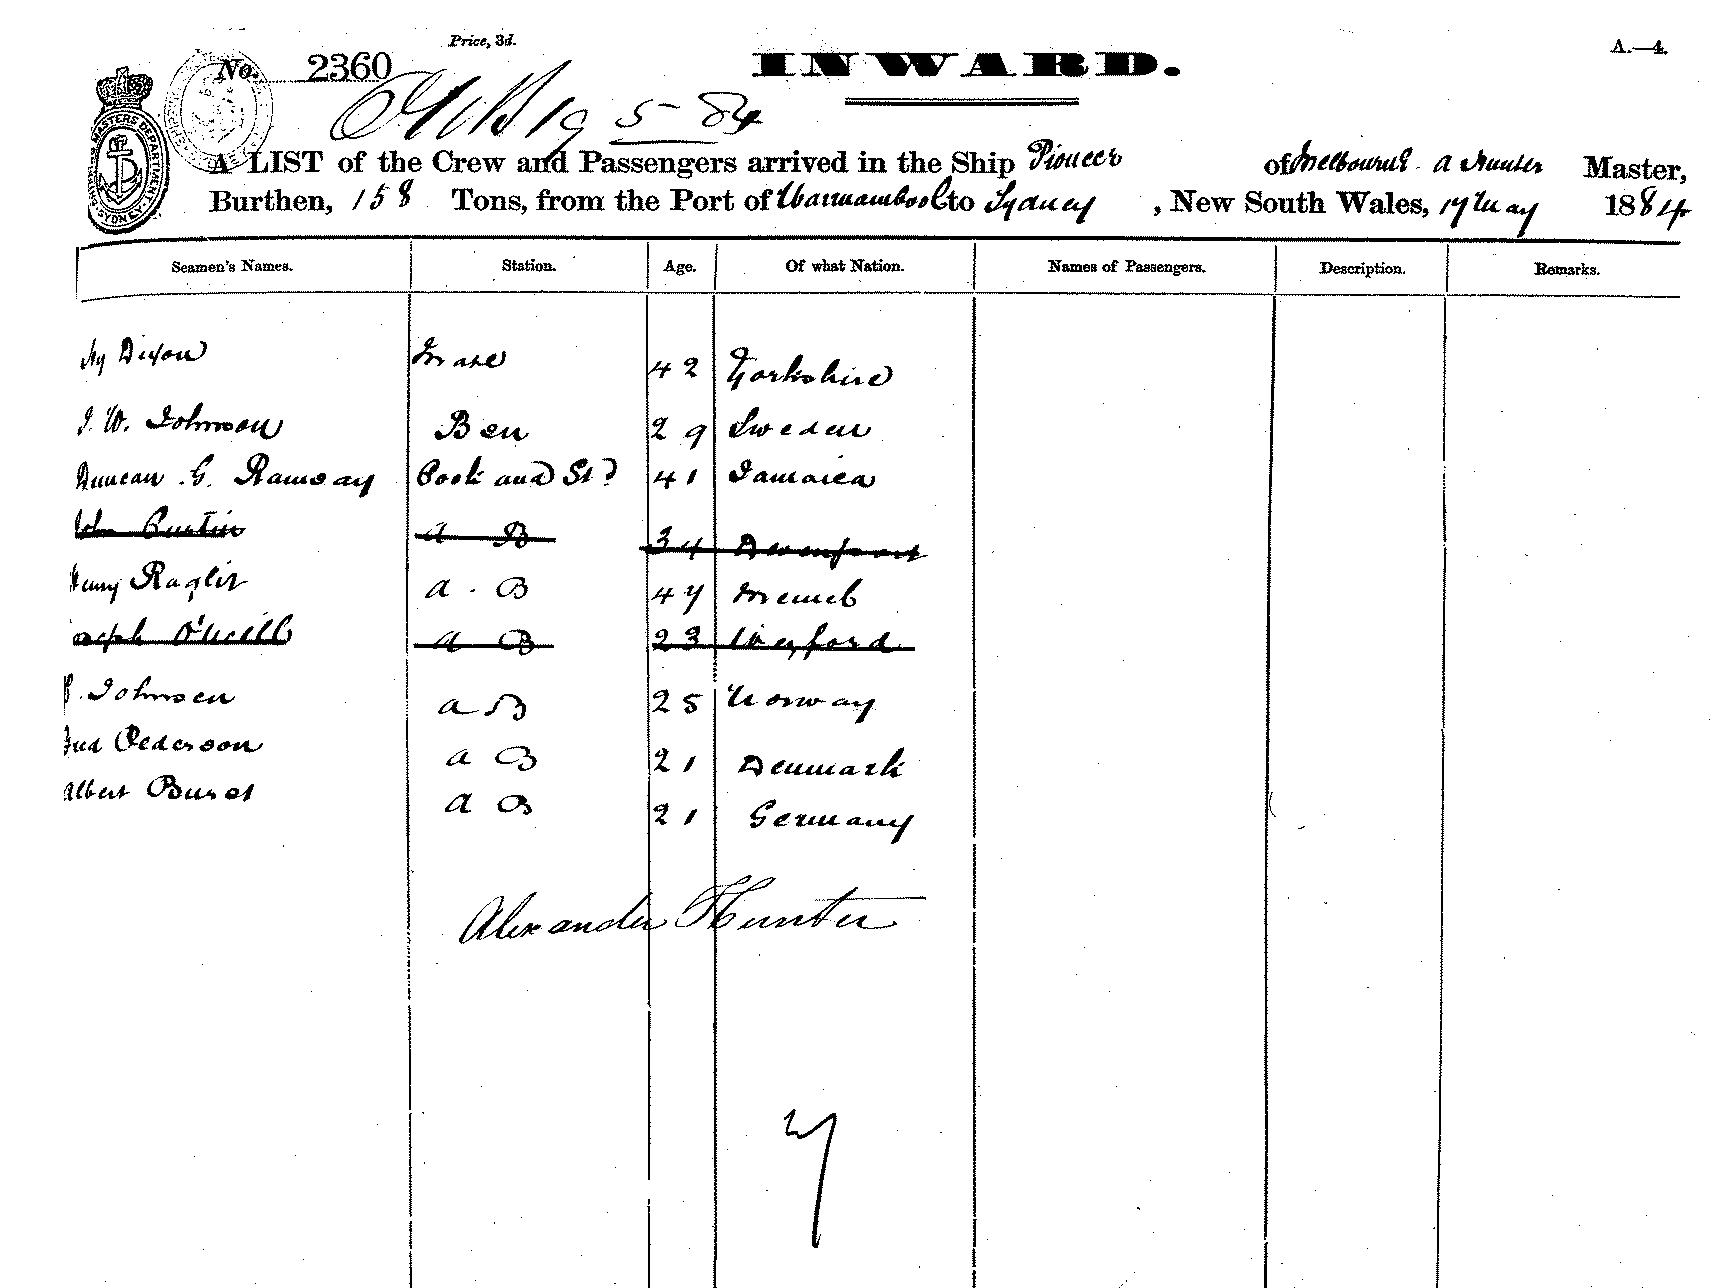 Price, 3d.
A.—4.
No. 2360
INWARD.
19 5 84
A LIST of the Crew and Passengers arrived in the Ship Pioneer of Melbourne A Hunter Master,
Burthen, 158 Tons, from the Port of Warrnambool to Sydney, New South Wales, 17 May 1884
Seamen's Names. Station. Age. Of what Nation. Names of Passengers. Description. Remarks.
Hy Dixon Mate 42 Yorkshire
J. W. Johnson Bsn 29 Sweden
Duncan G. Ramsay Cook and Std 41 Jamaica
John Curtin A B 34 Devenport
Henry A . B 47
Joseph O'Neill A B 23 Wexford
Johnsen A B 25 Norway
Fred Pederson A B 21 Denmark
Albert A B 21 Germany
Alexander Hunter
7